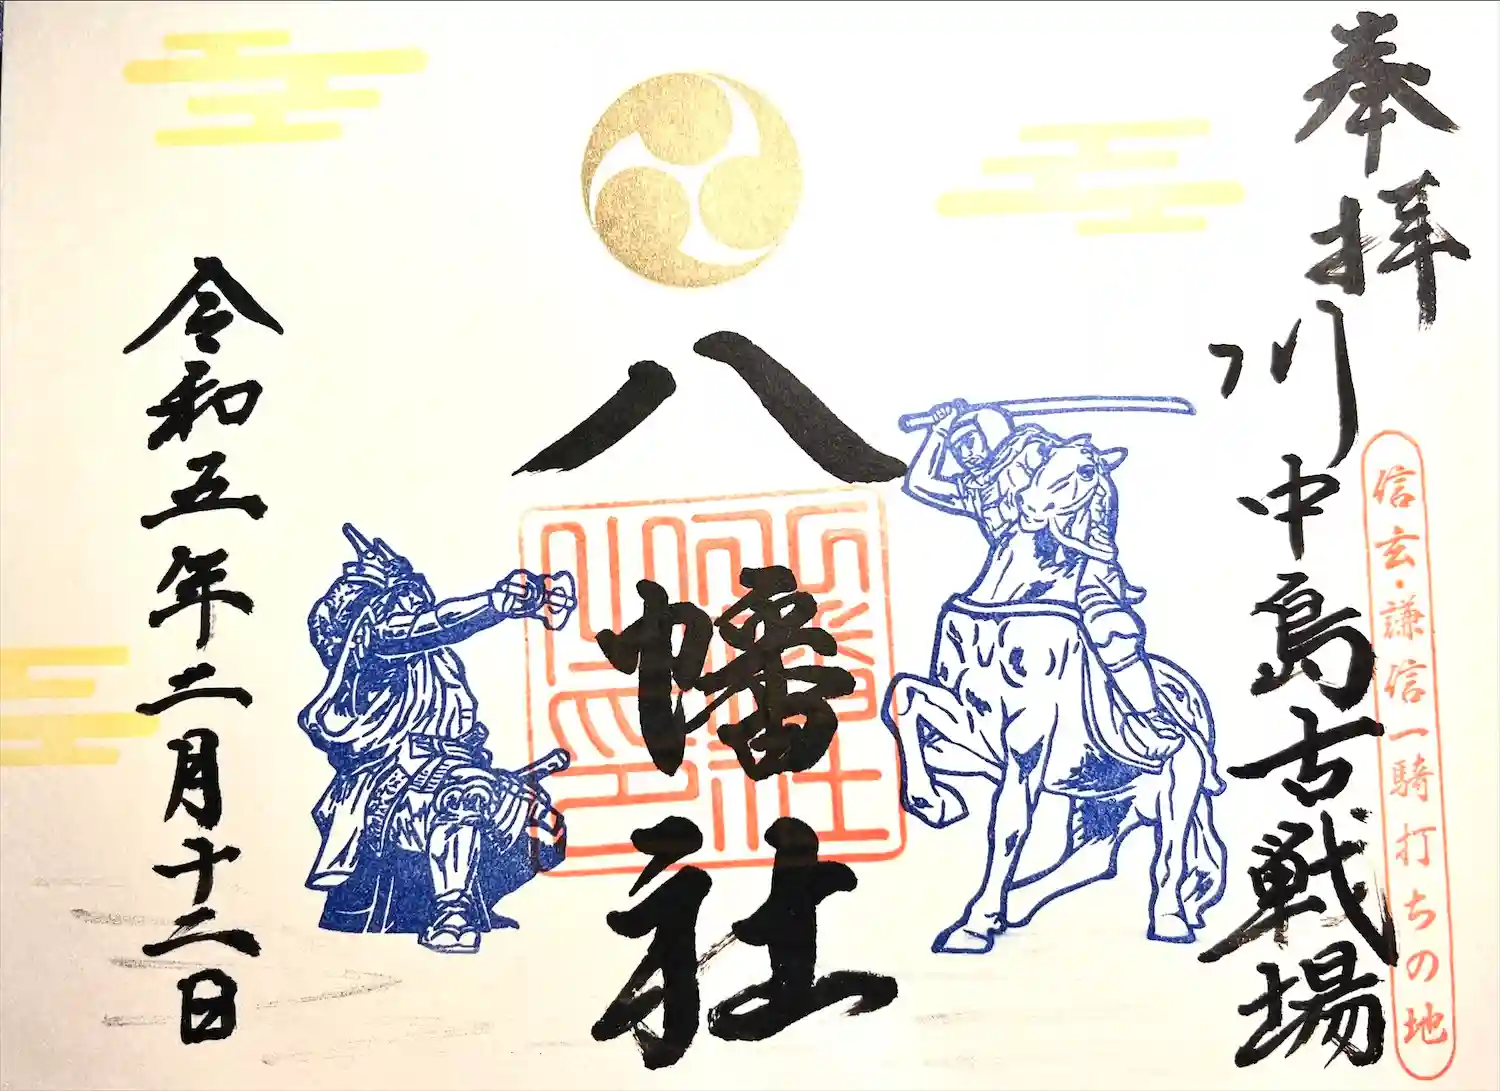 奉拝
川中島古戦場
信玄・謙信一騎打ちの地
八幡社
令和五年二月十二日